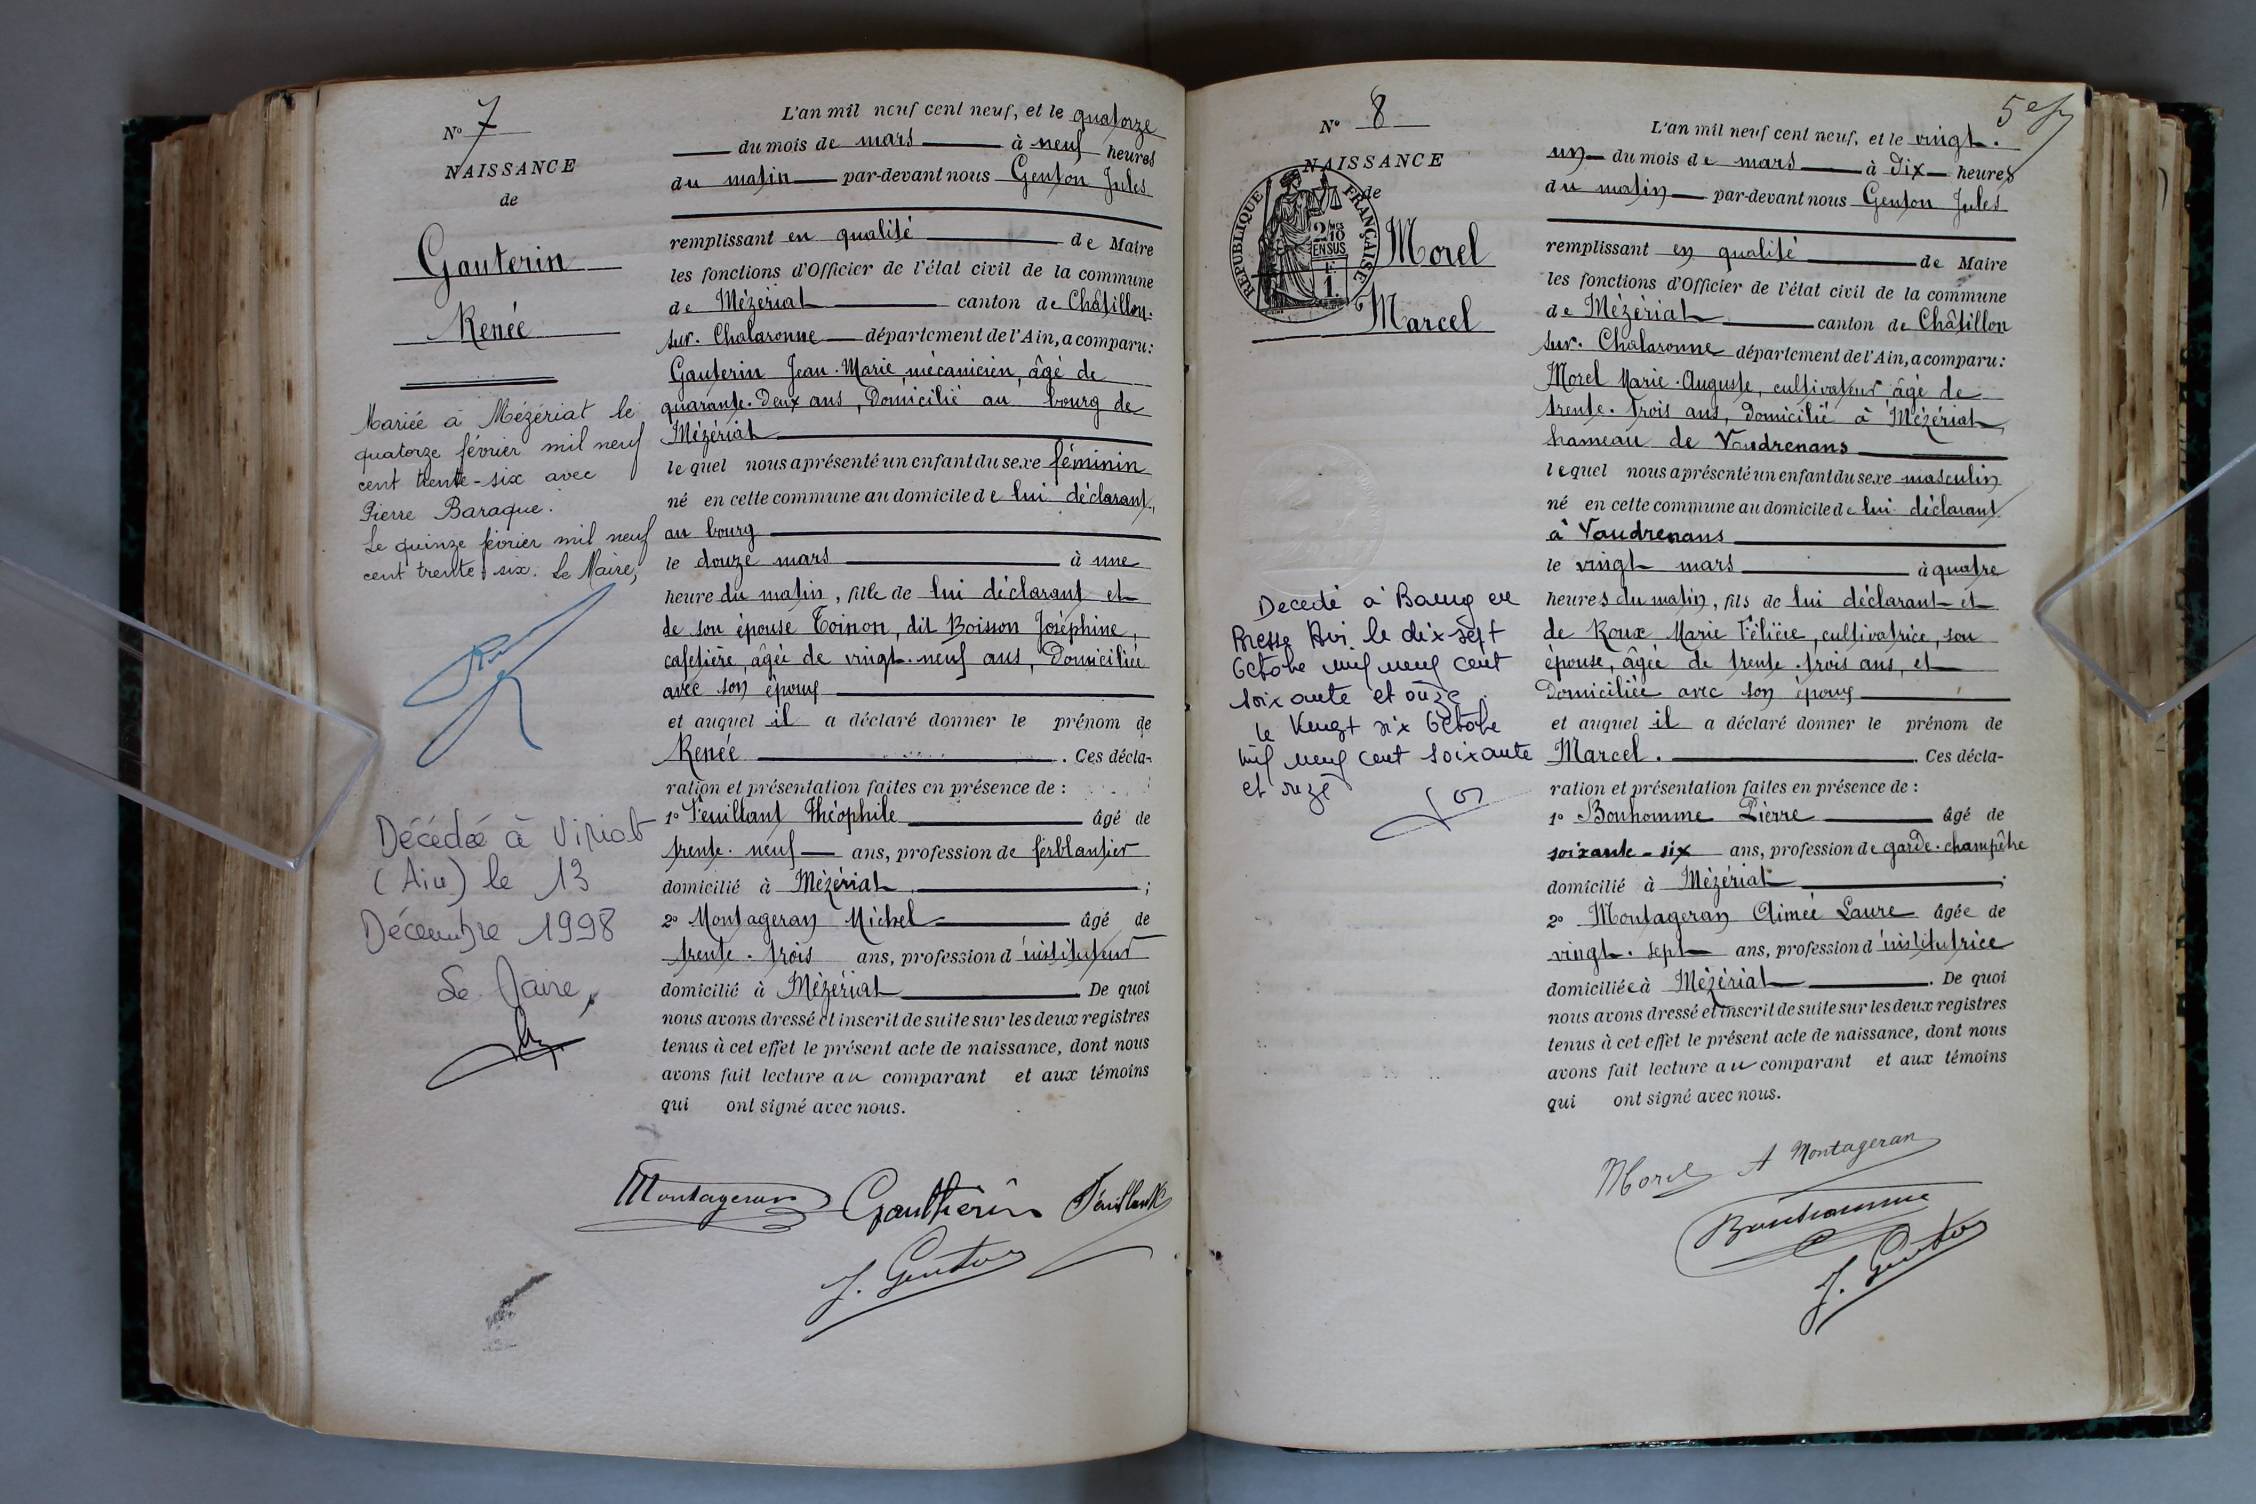 N° 7
NAISSANCE
de
Gauterin
Renée
Mariée à Mézériat le
quatorze février mil neuf
cent trente-six avec
Pierre Baraque.
Le quinze février mil neuf
cent trente-six. Le Maire,
Décédée à Viriat
(Ain) le 13
Décembre 1998
Le Maire,
L'an mil neuf cent neuf, et le quatorze
du mois de mars à neuf heures
du matin par-devant nous Genton Jules
remplissant en qualité de Maire
les fonctions d'Officier de l'état civil de la commune
de Mézériat canton de Châtillon-
sur-Chalaronne département de l'Ain, a comparu:
Gauterin Jean-Marie, mécanicien, âgé de
quarante-deux ans, domicilié au bourg de
Mézériat
lequel nous a présenté un enfant du sexe féminin
né en cette commune au domicile de lui déclarant,
au bourg
le douze mars à une
heure du matin, fille de lui déclarant et
de son épouse Toinon, dit Boisson Joséphine,
cafetière, âgée de vingt-neuf ans, domiciliée
avec son époux
et auquel il a déclaré donner le prénom de
Renée . Ces décla-
ration et présentation faites en présence de :
1° Feuillant Théophile âgé de
trente-neuf ans, profession de ferblantier
domicilié à Mézériat ;
2° Montageran Michel âgé de
trente-trois ans, profession d'instituteur
domicilié à Mézériat De quoi
nous avons dressé et inscrit de suite sur les deux registres
tenus à cet effet le présent acte de naissance, dont nous
avons fait lecture au comparant et aux témoins
qui ont signé avec nous.
Montageran Gautherin Feuillant
J. Genton
N° 8
NAISSANCE
de
RÉPUBLIQUE FRANÇAISE
2/10
EN SUS
1.
Morel
Marcel
Décédé à Bourg en
Bresse Ain le dix sept
Octobre mil neuf cent
soixante et onze.
le Vingt six Octobre
mil neuf cent soixante
et onze
5e
L'an mil neuf cent neuf, et le vingt-
un du mois de mars à dix heures
du matin par-devant nous Genton Jules
remplissant en qualité de Maire
les fonctions d'Officier de l'état civil de la commune
de Mézériat canton de Châtillon
sur-Chalaronne département de l'Ain, a comparu:
Morel Marie-Auguste, cultivateur, âgé de
trente-trois ans, domicilié à Mézériat,
hameau de Vaudrenans
lequel nous a présenté un enfant du sexe masculin
né en cette commune au domicile de lui déclarant
à Vaudrenans
le vingt mars à quatre
heures du matin, fils de lui déclarant et
de Roux Marie Félicie, cultivatrice, son
épouse, âgée de trente-trois ans, et
domiciliée avec son époux
et auquel il a déclaré donner le prénom de
Marcel. . Ces décla-
ration et présentation faites en présence de :
1° Bonhomme Pierre âgé de
soixante-six ans, profession de garde-champêtre
domicilié à Mézériat ;
2° Montageran Aimée Laure âgée de
vingt-sept ans, profession d'institutrice
domiciliée à Mézériat . De quoi
nous avons dressé et inscrit de suite sur les deux registres
tenus à cet effet le présent acte de naissance, dont nous
avons fait lecture au comparant et aux témoins
qui ont signé avec nous.
Morel A Montageran
Bonhomme
J. Genton